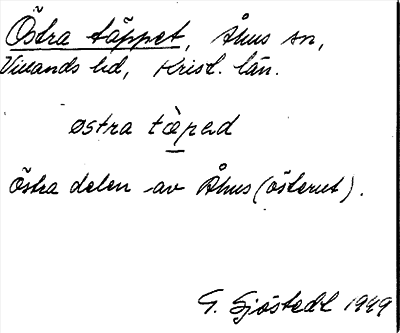 Östra täppet, Åhus sn,
Villands hd, Krist. län.
østra tæ̀pəd
Östra delen av Åhus (österut).
G. Sjöstedt 1949